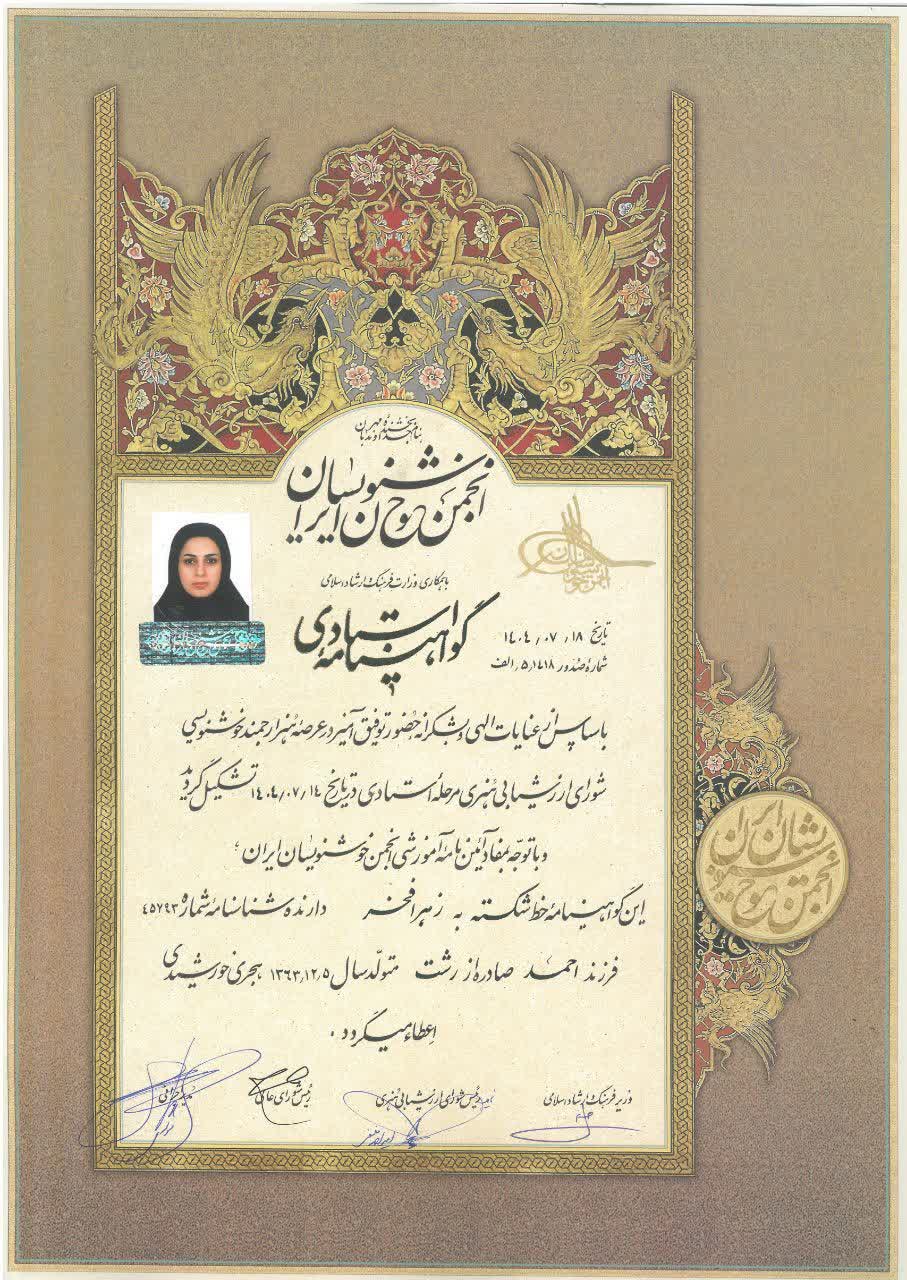 بنام خداوند بخشنده مهربان
انجمن خوشنویسان ایران
با همکاری وزارت فرهنگ و ارشاد اسلامی
گواهینامه استادی
تاریخ ۱۴۰۴/۰۷/۱۸
شماره صدور ۵/۱۴۱۸/الف
با سپاس از عنایات الهی و بشکرانه حضور توفیق آمیز در عرصه هنر ارجمند خوشنویسی
شورای ارزشیابی هنری مرحله استادی در تاریخ ۱۴۰۴/۰۷/۱۴ تشکیل گردید
و با توجه بمفاد آئین نامه آموزشی انجمن خوشنویسان ایران،
این گواهینامه خط شکسته به زهرا فخر دارنده شناسنامه شماره ۴۵۷۹۳
فرزند احمد صادره از رشت متولد سال ۱۳۶۳/۱۲/۵ هجری خورشیدی
اعطاء میگردد.
وزیر فرهنگ و ارشاد اسلامی
رئیس شورای ارزشیابی هنری
رئیس شورای عالی
انجمن خوشنویسان ایران